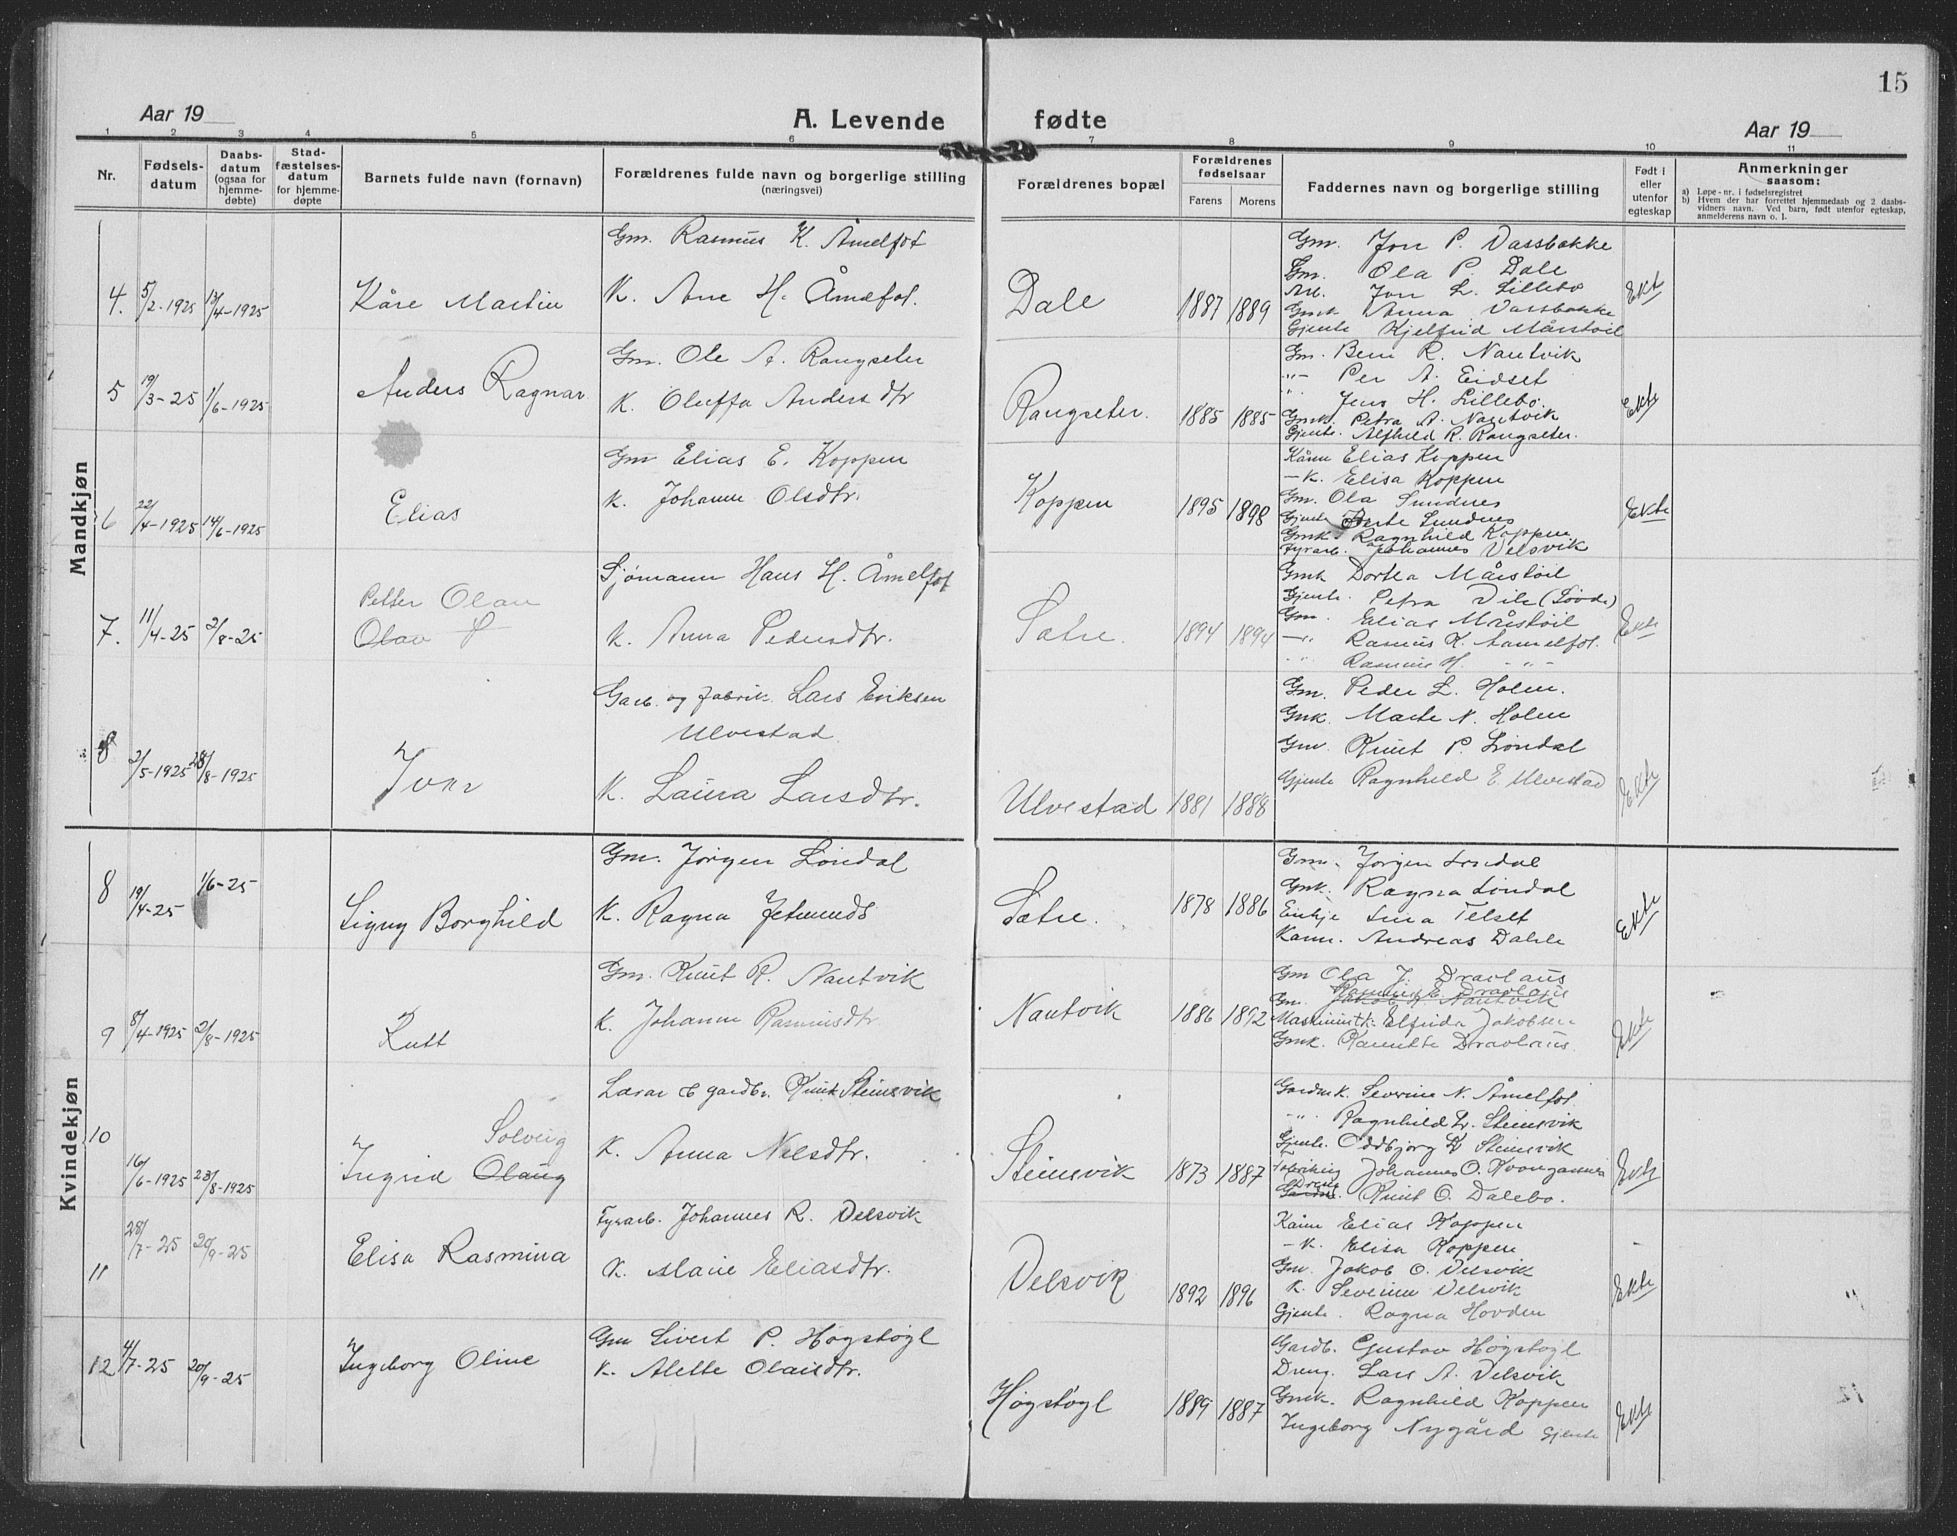 15
Aar 19
A. Levende
fødte
Aar 19
1 2 3 4 5 6 7 8 9 10 11
Nr.
Fødsels-
datum
Daabs-
datum
(ogsaa for
hjemme-
døbte)
Stad-
fæstelses-
datum
for hjemme-
døpte
Barnets fulde navn (fornavn)
Forældrenes fulde navn og borgerlige stilling
(næringsvei)
Forældrenes bopæl
Forældrenes
fødselsaar
Farens Morens
Faddernes navn og borgerlige stilling
Født i
eller
utenfor
egteskap
Anmerkninger
saasom:
a) Løpe-nr. i fødselsregistret
b) Hvem der har forrettet hjemmedaab og 2 daabs-
vidners navn. Ved barn, født utenfor egteskap,
anmelderens navn o. l.
Mandkjøn
4. 5/2-1925 13/4-1925
Kåre Martin
Gm. Rasmus K. Åmelfot
K. Ane H. Åmelfot.
Dale
1887 1889
Gm. Jon P. Vassbakke
Gm. Ola P. Dale
Arb. Jon L. Lillebø
Gmk Anna Vassbakke
Gjente Kjelfrid Mårstøil
Ekt
5 19/3-25 1/6-1925
Anders Ragnar
Gm. Ole A. Rangseter
K. Oluffa Andersdtr
Rangseter.
1885 1885
Gm. Bern R. Nautvik
-"- Per A. Eidset
" Jens H. Lillebø.
Gmk. Petra A. Nautvik
Gjente. Alfhild R. Rangseter.
Ekte
6 22/4-1925 14/6-1925
Elias
Gm Elias E. Koppen
K. Johanne Olsdtr.
Koppen
1895 1898
Kårm Elias Koppen
-K. Elisa Koppen
Gm. Ola Sundnes
Gjente Sundnes
Gmk. Ragnhild Koppen
Fyrarb. Johannes Velsvik
Ekte
7. 11/4-25 2/8-25
Petter Olav
Olav P
Sjømann Hans H. Åmelfot
K. Anna Pedersdtr.
Sætre.
1894 1894
Gmk Dortea Mårstøil
Gjente. Petra Vik (Løvde)
Gm. Elias Mårstøil
-"- Rasmus K. Aamelfot.
" Rasmus H. -"-
Ekte
8 2/5-1925 23/8-1925
Ivar
Garb. og fabrik. Lars Eriksen
Ulvestad
K. Laura Larsdtr.
Ulvestad
1881 1888
Gm. Peder L. Holen.
Gmk. Marte N. Holen
Gm. Knut P. Løndal
Gjente Ragnhild E. Ulvestad
Ekte
Kvindekjøn
8 19/4-25 1/6-25
Signy Borghild
Gm. Jørgen Løndal
K. Ragna Jetmunds
Sætre.
1878 1886
Gm. Jørgen Løndal
Gmk. Ragna Løndal
Enkje Lina Telset
Kårm. Andreas Dahle
Ekte
9 8/4-1925 2/8-1925
Rutt
Gm. Knut R. Nautvik
K. Johanne Rasmusdtr
Nautvik
1886 1892
Gm Ola J. Dravlaus
Rasmus E. Dravlaus
Gm. Jakob R Nautvik
Maskinistk. Elfrida Jakobsen
Gmk. Kanutte Dravlaus.
Ekte
10 16/6-1925 23/8-1925
Solveig
Ingrid Olaug
Lærar & gardbr. Knut Steinsvik
K. Anna Nilsdtr.
Steinsvik
1873 1887
Gardm k. Severine N. Åmelfot
-"- Ragnhild L. Steinsvik
Gjente. Oddbjorg K Steinsvik
Johannes O. Kvangarsnes
Dreng Knut O. Dalebø.
Ekte
11 28/7-25 20/9-25
Elisa Rasmina
Fyrarb. Johannes R. Velsvik
K. Marie Eliasdtr.
Velsvik
1892 1896
Kårm Elias Koppen
-K. Elisa Koppen
Gm. Jakob O. Velsvik
K. Severine Velsvik
Gjente. Ragna Hovden
Ekte
12 4/7-25 20/9-25
Ingeborg Oline
Gm Sivert P. Høgstøgl
K. Alette Olaisdtr.
Høgstøgl
1889 1887
Gardb. Gustav Høgstøgl
Dreng. Lars A. Velsvik
Gmk. Ragnhild Koppen
Ingeborg Nygård Gjente
Ekte